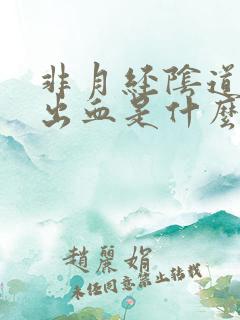 非月經陰道
出血是什麼
趙麗娟
未經同意禁止轉載